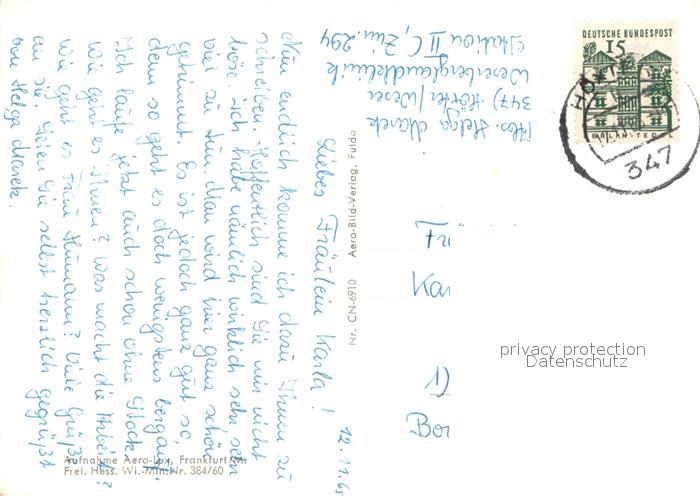 Abs. Helga Marek
347) Höxter/Weser
Weserberglandklinik
Station II C, Zim. 294
12.11.65
Liebes Fräulein Karla!
Nun endlich komme ich dazu Ihnen zu
schreiben. Hoffentlich sind Sie mir nicht
böse. Ich habe nämlich wirklich sehr, sehr
viel zu tun. Man wird hier ganz schön
getrimmt. Es ist jedoch ganz gut so,
denn so geht es doch wenigstens bergauf.
Ich laufe jetzt auch schon ohne Stock.
Wie geht es Ihnen? Was macht die Arbeit?
Wie geht es Frau Humann? Viele Grüße
an sie. Seien Sie selbst herzlich gegrüßt
von Helga Marek.
Nr. CN-6910 Aero-Bild-Verlag, Fulda
Aufnahme Aero-Lux, Frankfurt/M.
Frei. Hess. Wi.-Min. Nr. 384/60
DEUTSCHE BUNDESPOST
15
347
Kar
Bor
privacy protection
Datenschutz